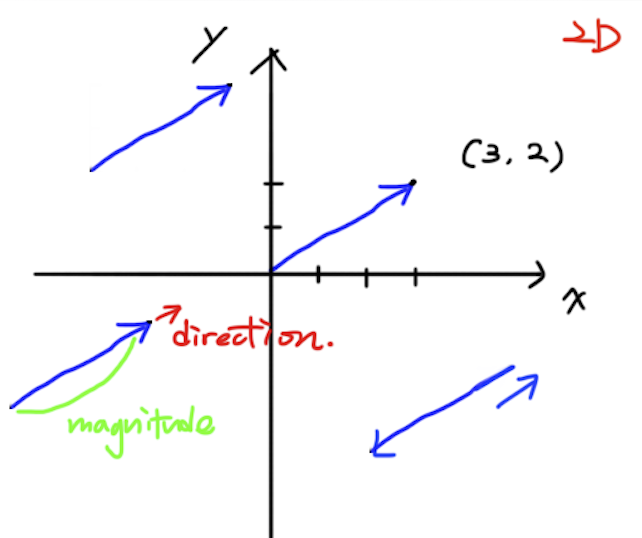 2D
y
(3, 2)
x
direction.
magnitude